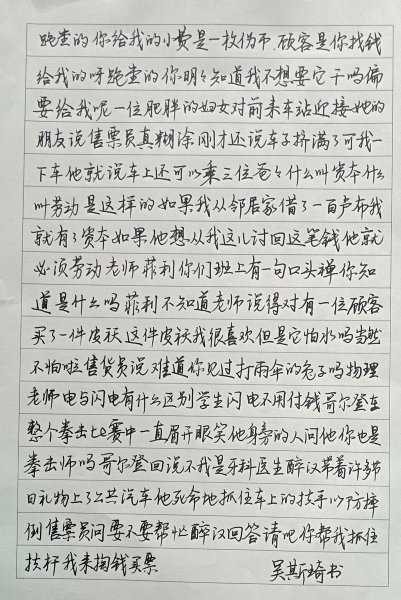 跑堂的你给我的小费是一枚伪币顾客是你找钱
给我的呀跑堂的你明々知道我不想要它干吗偏
要给我呢一位肥胖的妇女对前来车站迎接她的
朋友说售票员真糊涂刚才还说车子挤满了可我一
下车他就说车上还可以乘三位爸々什么叫资本什么
叫劳动是这样的如果我从邻居家借了一百卢布我
就有了资本如果他想从我这儿讨回这笔钱他就
必须劳动老师菲利你们班上有一句口头禅你知
道是什么吗菲利不知道老师说得对有一位顾客
买了一件皮袄这件皮袄我很喜欢但是它怕水吗当然
不怕啦售货员说难道你见过打雨伞的兔子吗物理
老师电与闪电有什么区别学生闪电不用付钱哥尔登在
整个拳击比赛中一直眉开眼笑他身旁的人问他你也是
拳击师吗哥尔登回说不我是牙科医生醉汉带着许多节
日礼物上了公共汽车他死命地抓住车上的扶手以防摔
倒售票员问要不要帮忙醉汉回答请吧你帮我抓住
扶杆我来掏钱买票 吴斯琦书